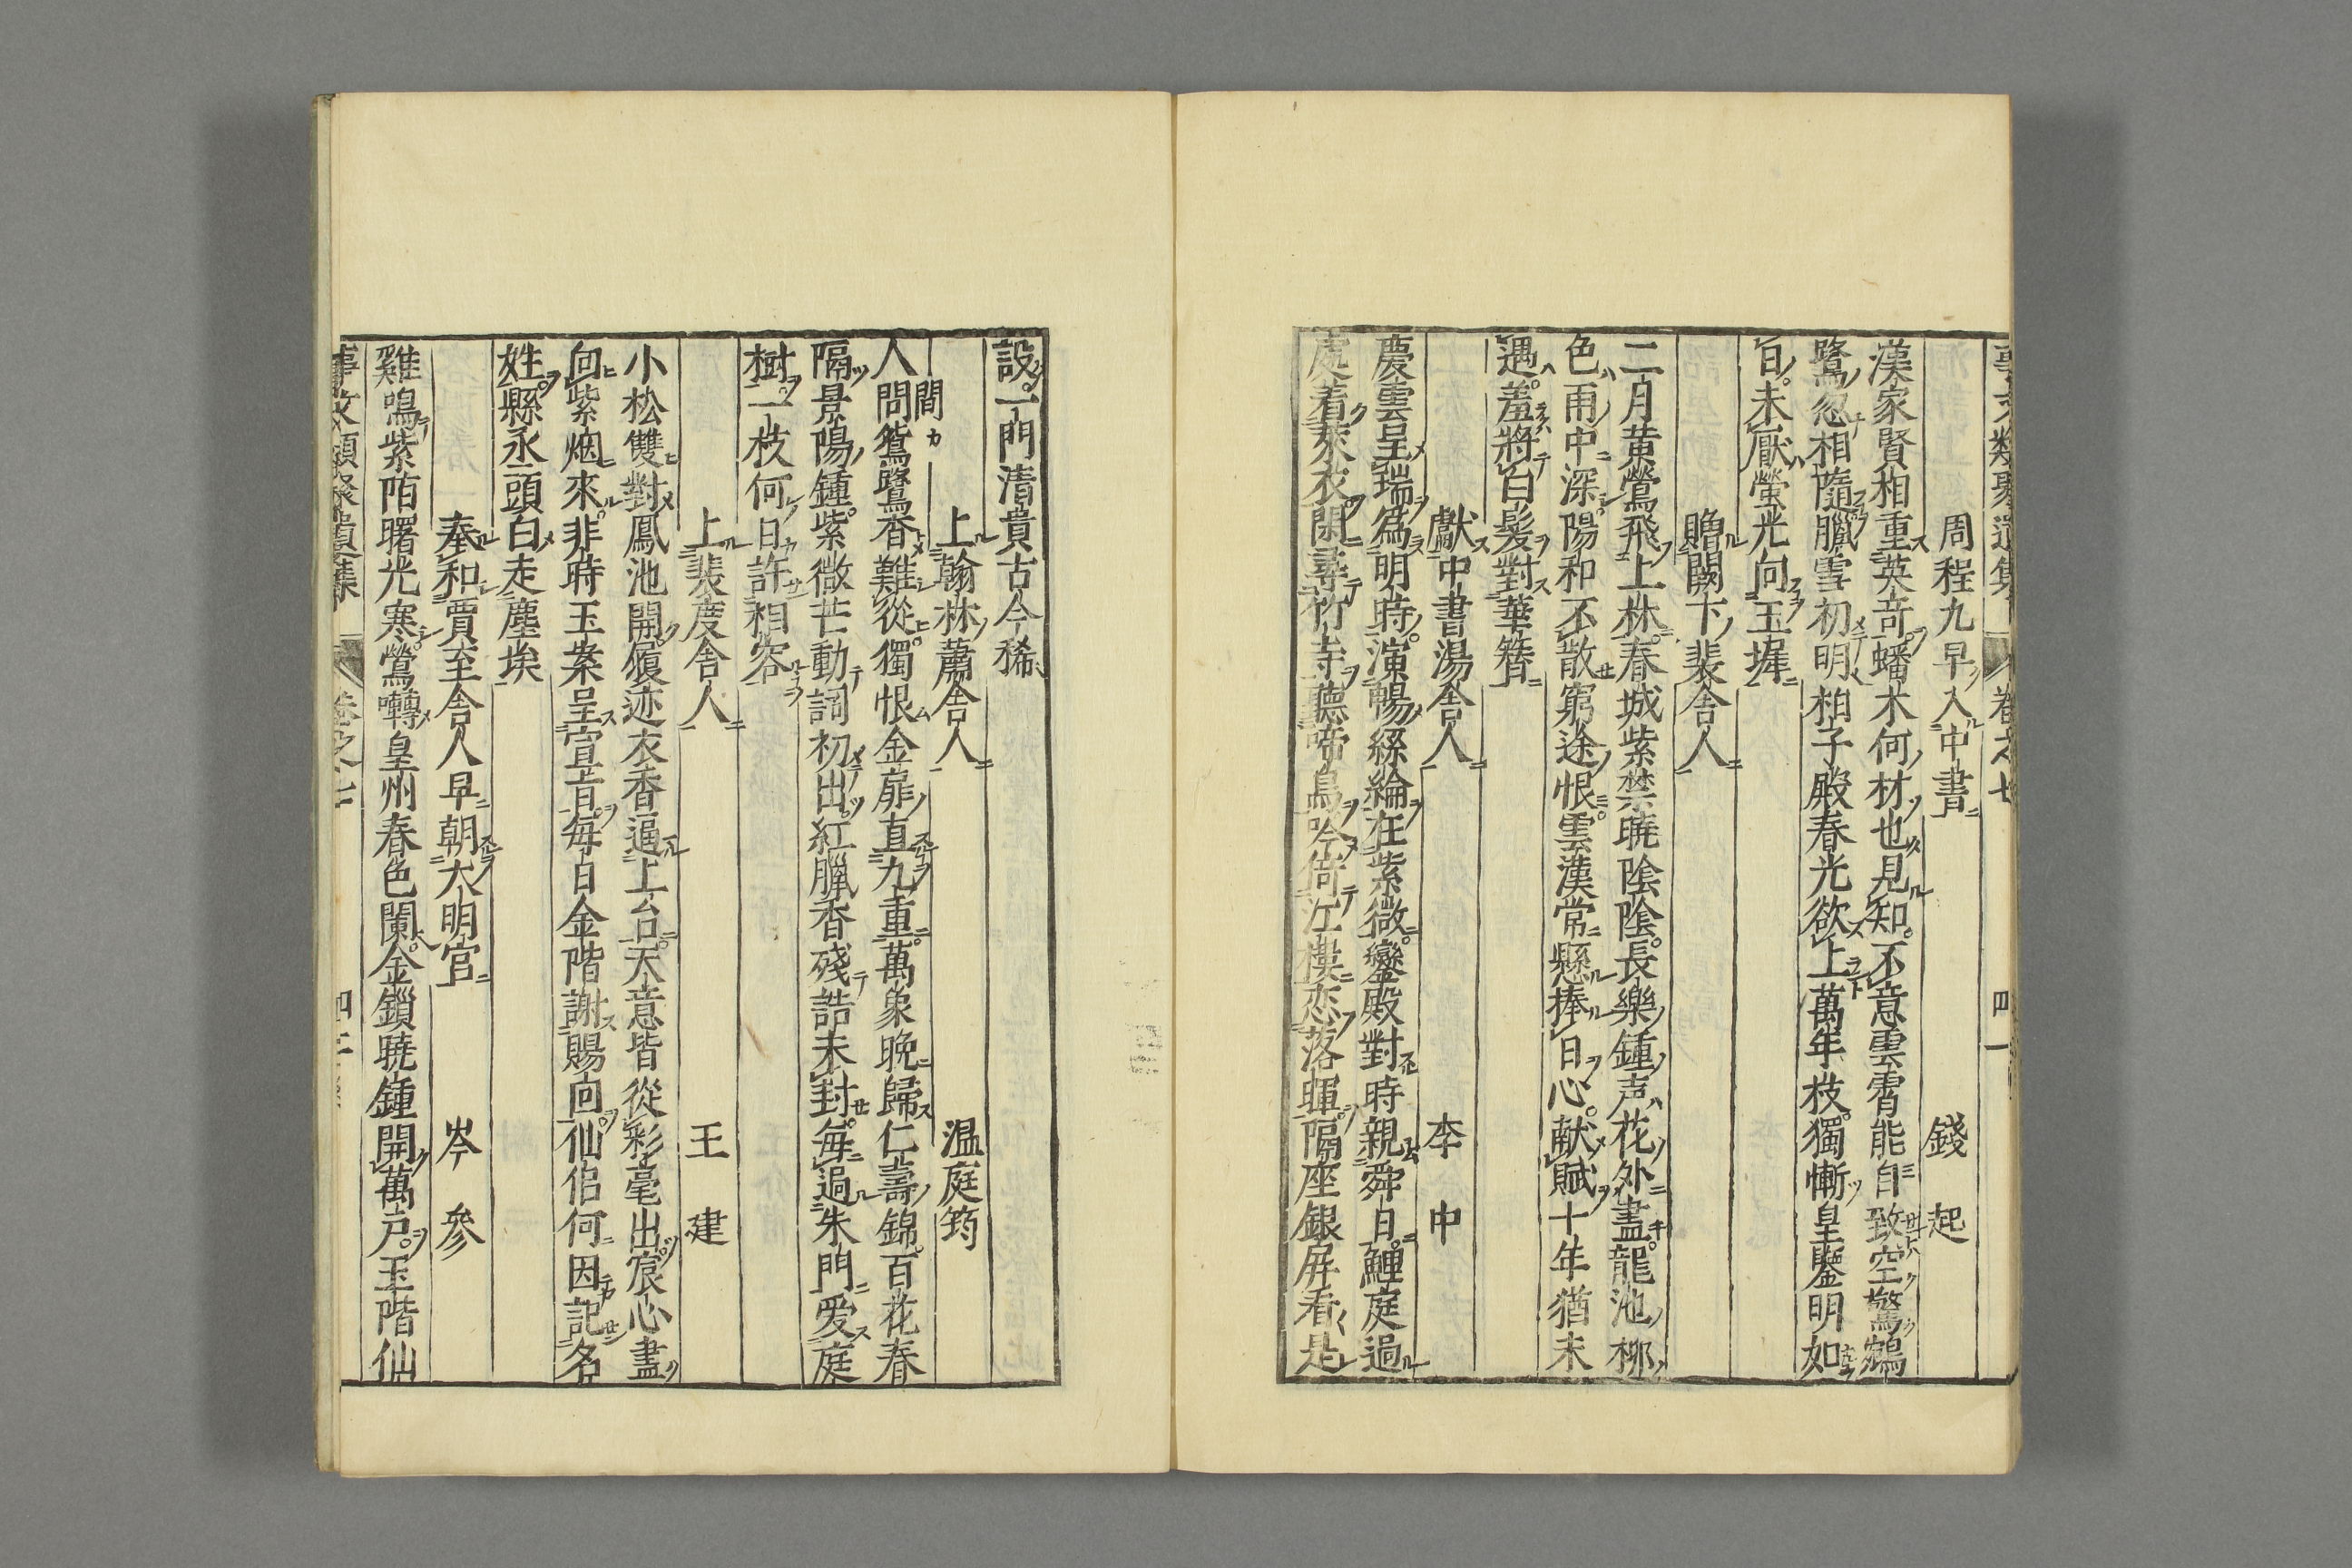 事文類聚遺集 卷之七 四一
周程九早入中書 錢起
漢家賢相重英奇蟠木何材也見知不意雲霄能自致空驚鵷
鷺忽相隨臘雪初明柏子殿春光欲上萬年枝獨慚皇鑒明如
日未厭螢光向玉墀
贈闕下裴舍人
二月黄鶯飛上林春城紫禁暁陰陰長樂鍾声花外盡龍池柳
色雨中深陽和不散窮途恨雲漢常懸捧日心献賦十年猶未
遇羞將白髮對華簪
獻中書湯舍人 李中
慶雲呈瑞為明時演暢絲綸在紫微鑾殿對時親舜日鯉庭過
處着萊衣閑尋竹寺聽啼鳥吟倚江樓恋落暉隔座銀屏看是
設一門清貴古今稀
上翰林蕭舍人 温庭筠
人問鴛鷺杳難從獨恨金扉直九重萬象晩歸仁壽錦百花春
間カ
隔景陽鍾紫微芒動詞初出紅臘香殘誥未封毎過朱門愛庭
樹一枝何日許相容
上裴度舍人 王建
小松雙對鳳池開履迹衣香逼上台天意皆從彩毫出宸心盡
向紫烟來非時玉案呈宣旨毎日金階謝賜回仙侶何因記名
姓縣丞頭白走塵埃
奉和賈至舍人早朝大明宫 岑参
雞鳴紫陌曙光寒鶯囀皇州春色闌金鎻暁鍾開萬戸玉階仙
事文類聚遺集 卷之七 四二